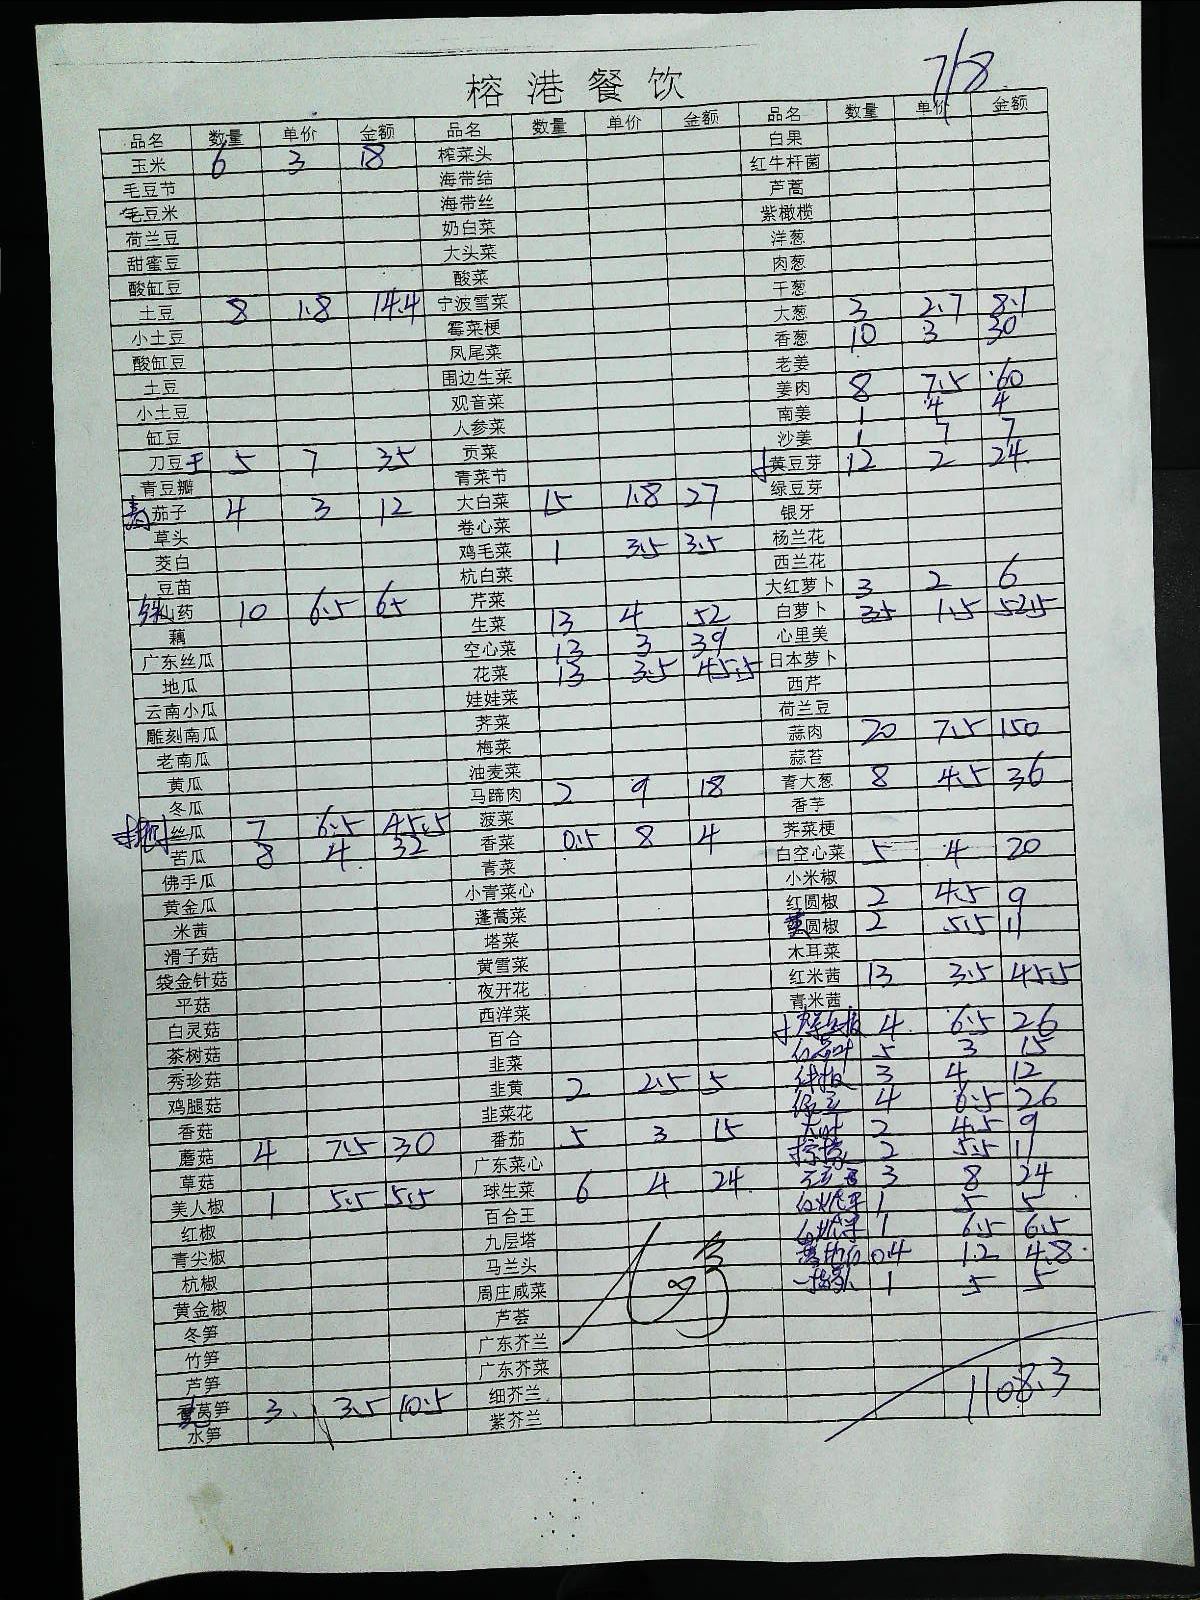 7/8
榕港餐饮
品名 数量 单价 金额 品名 数量 单价 金额 品名 数量 单价 金额
玉米 6 3 18 榨菜头 白果
毛豆节 海带结 红牛杆菌
毛豆米 海带丝 芦蒿
荷兰豆 奶白菜 紫橄榄
甜蜜豆 大头菜 洋葱
酸缸豆 酸菜 肉葱
土豆 8 1.8 14.4 宁波雪菜 干葱
小土豆 霉菜梗 大葱 3 2.7 8.1
酸缸豆 凤尾菜 香葱 10 3 30
土豆 围边生菜 老姜
小土豆 观音菜 姜肉 8 7.5 60
缸豆 人参菜 南姜 1 4 4
刀豆 5 7 35 贡菜 沙姜 1 7 7
青豆瓣 青菜节 黄豆芽 12 2 24
茄子 4 3 12 大白菜 15 1.8 27 绿豆芽
草头 卷心菜 银牙
茭白 鸡毛菜 1 3.5 3.5 杨兰花
豆苗 杭白菜 西兰花
铁山药 10 6.5 65 芹菜 大红萝卜 3 2 6
藕 生菜 13 4 52 白萝卜 35 1.5 52.5
广东丝瓜 空心菜 13 3 39 心里美
地瓜 花菜 13 3.5 45.5 日本萝卜
云南小瓜 娃娃菜 西芹
雕刻南瓜 荠菜 荷兰豆
老南瓜 梅菜 蒜肉 20 7.5 150
黄瓜 油麦菜 蒜苔
冬瓜 马蹄肉 2 9 18 青大葱 8 4.5 36
丝瓜 7 6.5 45.5 菠菜 香芋
苦瓜 8 4 32 香菜 0.5 8 4 荠菜梗
佛手瓜 青菜 白空心菜 5 4 20
黄金瓜 小青菜心 小米椒
米茜 蓬蒿菜 红圆椒 2 4.5 9
滑子菇 塔菜 圆椒 2 5.5 11
袋金针菇 黄雪菜 木耳菜
平菇 夜开花 红米茜 13 3.5 45.5
白灵菇 西洋菜 青米茜
茶树菇 百合 4 6.5 26
秀珍菇 韭菜 5 3 15
鸡腿菇 韭黄 2 2.5 5 线椒 3 4 12
香菇 韭菜花 4 6.5 26
蘑菇 4 7.5 30 番茄 5 3 15 2 4.5 9
草菇 广东菜心 2 5.5 11
美人椒 1 5.5 5.5 球生菜 6 4 24 3 8 24
红椒 百合王 1 5 5
青尖椒 九层塔 1 6.5 6.5
杭椒 马兰头 0.4 12 4.8
黄金椒 周庄咸菜 1 5 5
冬笋 芦荟
竹笋 广东芥兰
芦笋 广东芥菜
莴笋 3 3.5 10.5 细芥兰 1108.3
水笋 紫芥兰